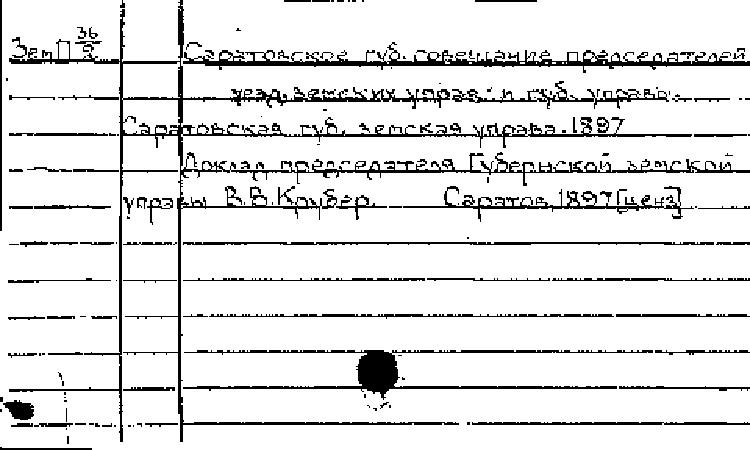 Зем П 36/2 Саратовское губ. совещание председателей
уезд. земских управ. и губ. управы.
Саратовская губ. земская управа. 1897
Доклад председателя Губернской земской
управы В.В. Крубер. Саратов, 1897 [ценз]